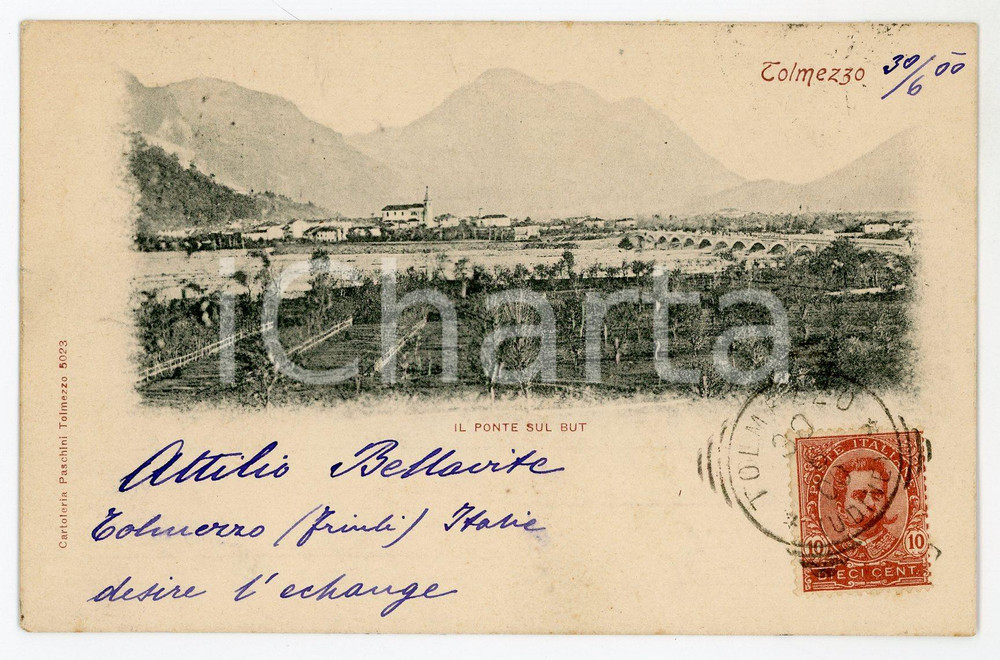 Tolmezzo 30/6 00
iCharta
IL PONTE SUL BUT
Cartoleria Paschini Tolmezzo 5023
Attilio Bellavite
Tolmezzo (Friuli) Italie
desire l'echange
TOLMEZZO
(UDINE)
POSTE ITALIANE
10 10
DIECI CENT.